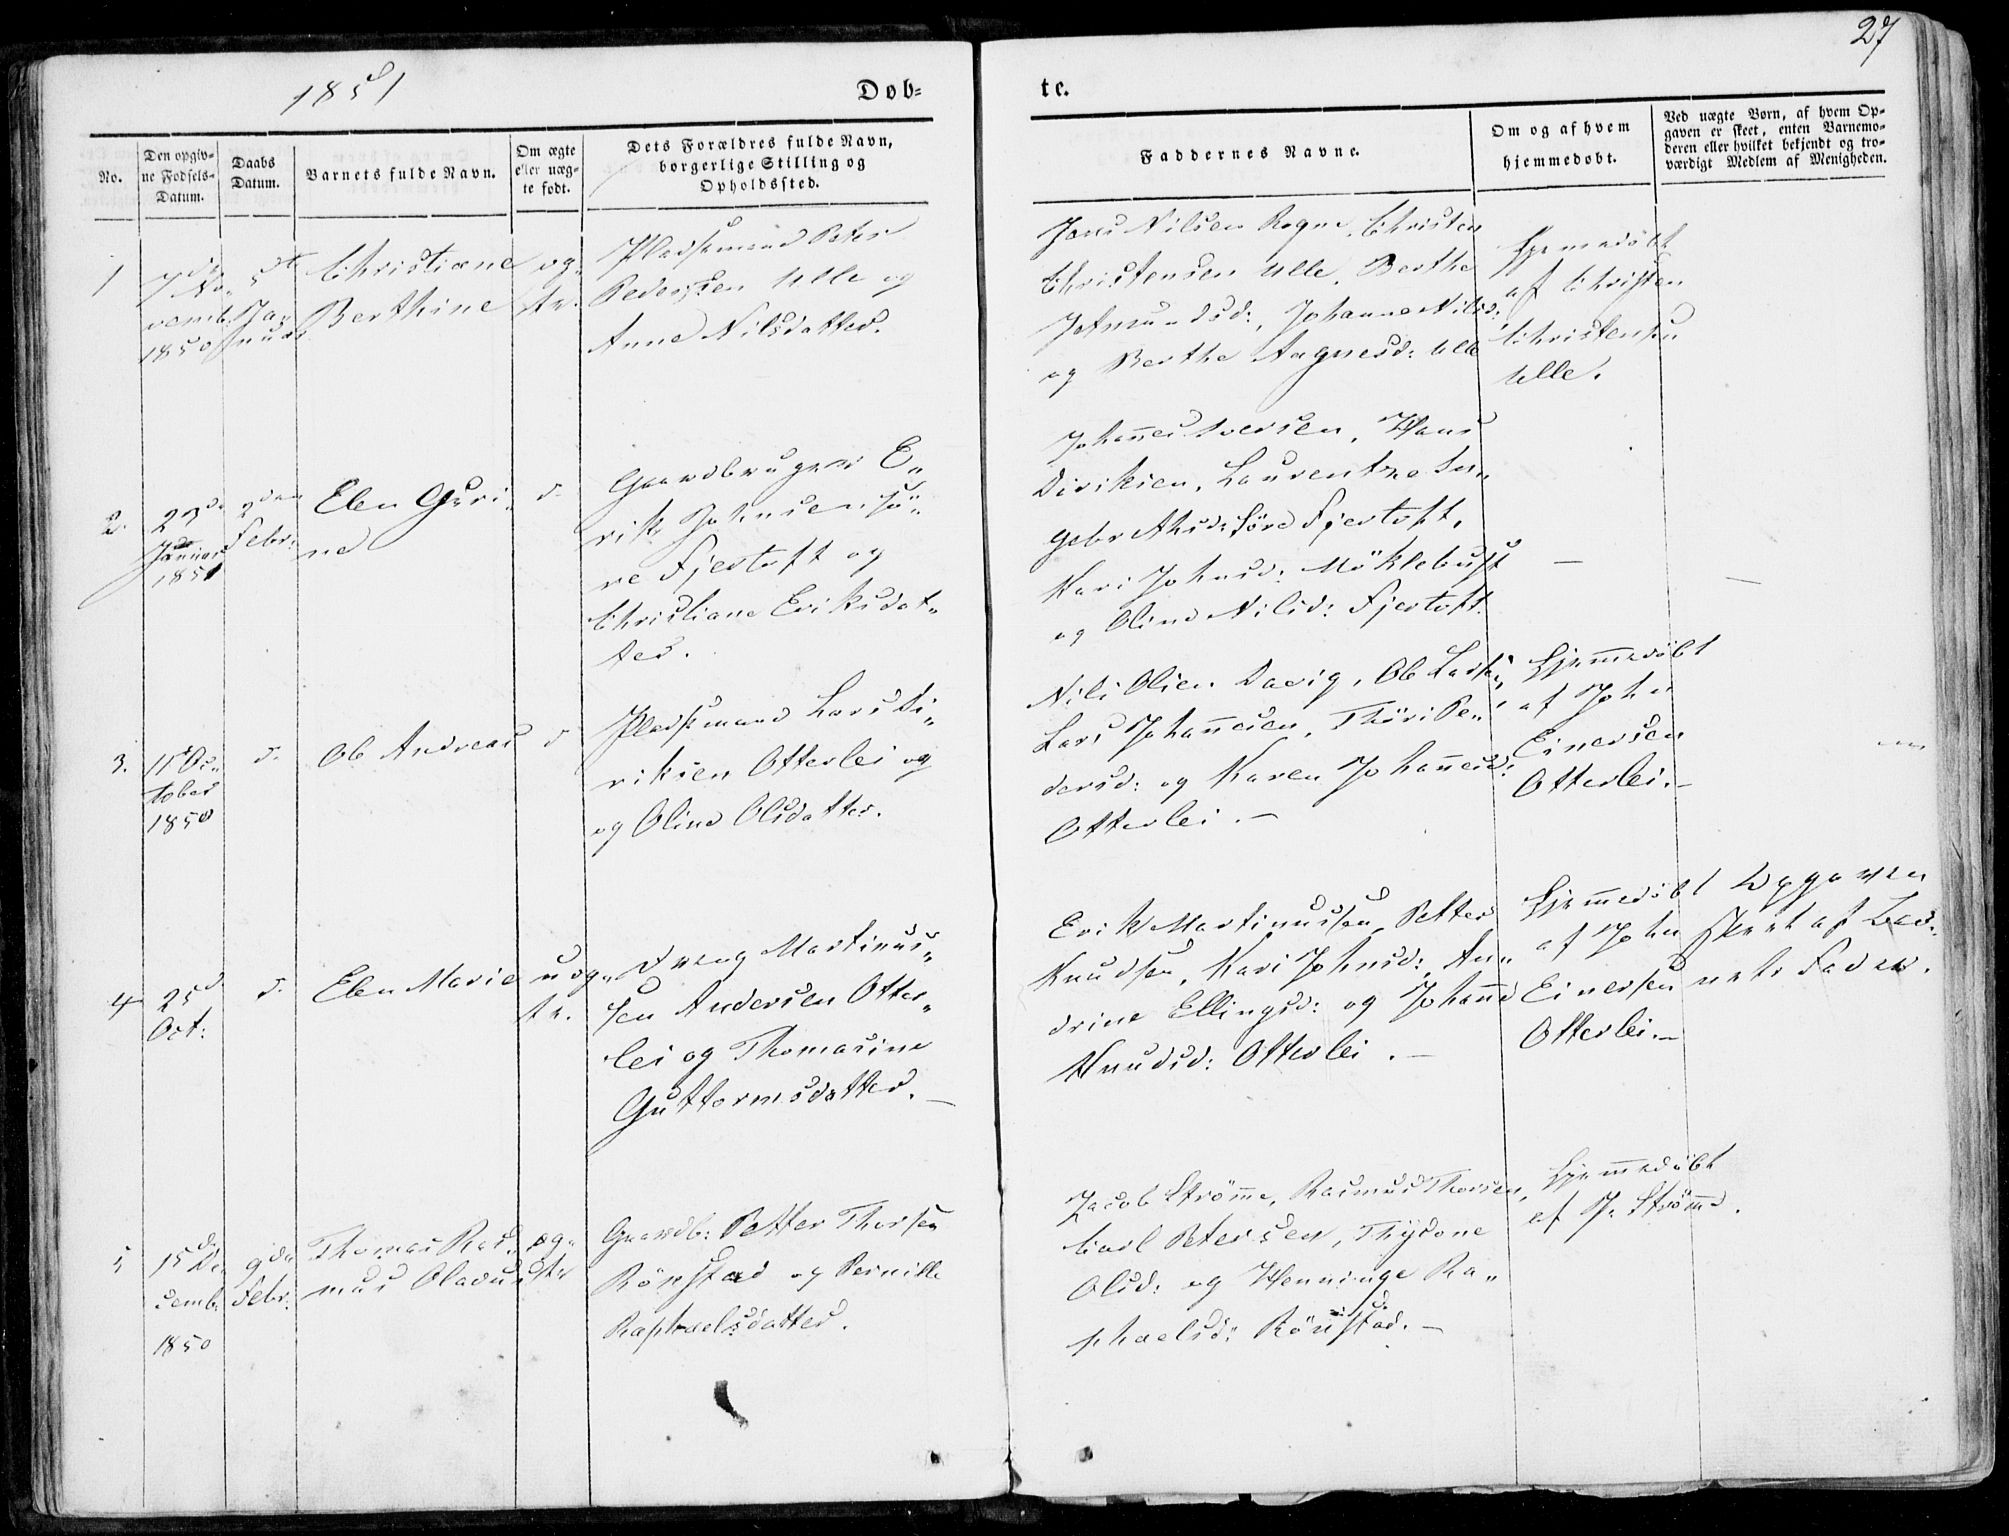 27
1851
Døb-
te.
No.
Den opgiv-
ne Fødsels-
Datum.
Daabs
Datum.
Barnets fulde Navn.
Om ægte
eller uæg-
te født.
Dets Forældres fulde Navn,
borgerlige Stilling og
Opholdssted.
Faddernes Navne.
Om og af hvem
hjemmedøbt.
Ved uægte Børn, af hvem Op-
gaven er skeet, enten Barnemo-
deren eller hvilket bekjendt og tro-
værdigt Medlem af Menigheden.
1
7d No-
vemb.
1850
5t
Ja-
nuar
Christiane
Berthine
æg-
te.
Pladsemand Peter
Pedersen Ulle og
Anne Nilsdatter.
Jens Nilsen Rogne, Christen
Christensen Ulle, Berthe
Johanne Nilsd:
og Berthe Aagnesd: Ulle
Hjemmedøbt
af Christen
Christensen
Ulle.
2.
Januar
1851
2den
Febr:
Elen Guri-
ne
d.
Gaardbruger E-
rik Johnsen Sø-
re Fjertoft og
Christiane Eriksdat-
ter.
Johannes Iversen, Hans
Diriksen, Laurentze In-
gebrethsd: Søre Fjertoft,
Kari Johnsd: Möklebust
og Oline Nilsd: Fjertoft.
3.
11t Oc-
tober
1850
d.
Ole Andreas
d
Pladsemand Lars Di-
riksen Otterlei og
og Oline Olsdatter.
Nils Olsen Davig, Ole Larsen,
Lars Johannesen, Thüri Pe-
dersd: og Karen Johannesd:
Otterlei. —
Hjemmedøbt
af John
Einersen
Otterlei. —
4
25d
Oct:
d.
Elen Marie
uæg-
te.
Dreng Martinus-
sen Andersen Otter-
lei og Thomasine
Guttormsdatter. —
Erik Martinussen, Petter
Knudsen, Kari Johnsd:, An-
drine Ellingsd: og Johanne
Knudsd: Otterlei. —
Hjemmedøbt
af John
Einersen
Otterlei. —
Opgaven
skeet af Bar-
nets Fader.
5
15de De-
cemb:
1850
9de
Febr:
Thomas Ras-
mus Olaus
æg-
te
Gaardb: Petter Thorsen
Rönstad og Pernille
Raphaelsdatter.
Jacob Strömme, Rasmus Thorsen,
Carl Petersen, Thydone
Olsd: og Henninge Ra-
phaelsd: Rönstad. —
Hjemmedøbt
af J. Strömme.